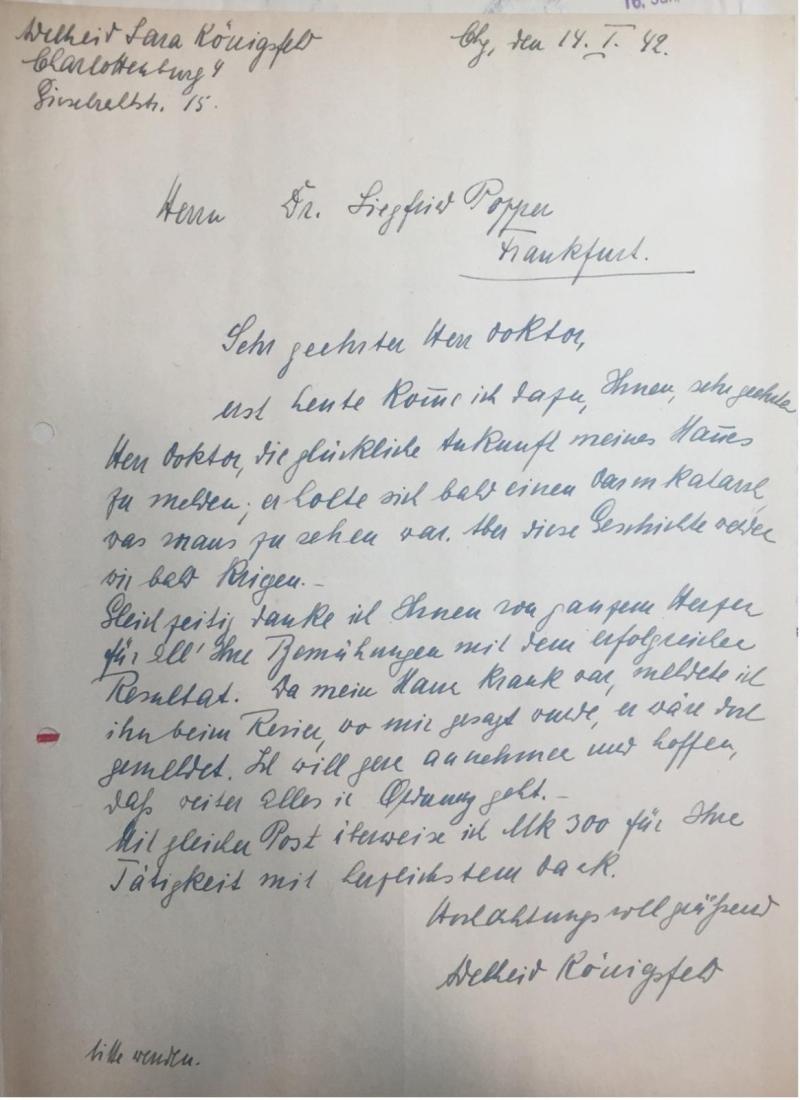 16. Jan.
Adelheid Sara Königsfeld
Charlottenburg 4
Giesebrechtstr. 15.
Chg, den 14. I. 42.
Herrn Dr. Siegfried Popper
Frankfurt.
Sehr geehrter Herr Doktor,
erst heute kom̅e ich dazu, Ihnen, sehr geehrter
Herr Doktor, die glückliche Ankunft meines Man̅es
zu melden; er holte sich bald einen Darmkatarrh,
was voraus zu sehen war. Aber diese Geschichte werden
wir bald kriegen. –
Gleichzeitig danke ich Ihnen von ganzem Herzen
für all' Ihre Bemühungen mit dem erfolgreichen
Resultat. Da mein Mann krank war, meldete ich
ihn beim Revier, wo mir gesagt wurde, er wäre dort
gemeldet. Ich will gern annehmen und hoffen,
daß weiter alles in Ordnung geht. –
Mit gleicher Post überweise ich Mk 300 für Ihre
Tätigkeit mit herzlichstem Dank.
Hochachtungsvoll grüßend
Adelheid Königsfeld
bitte wenden.